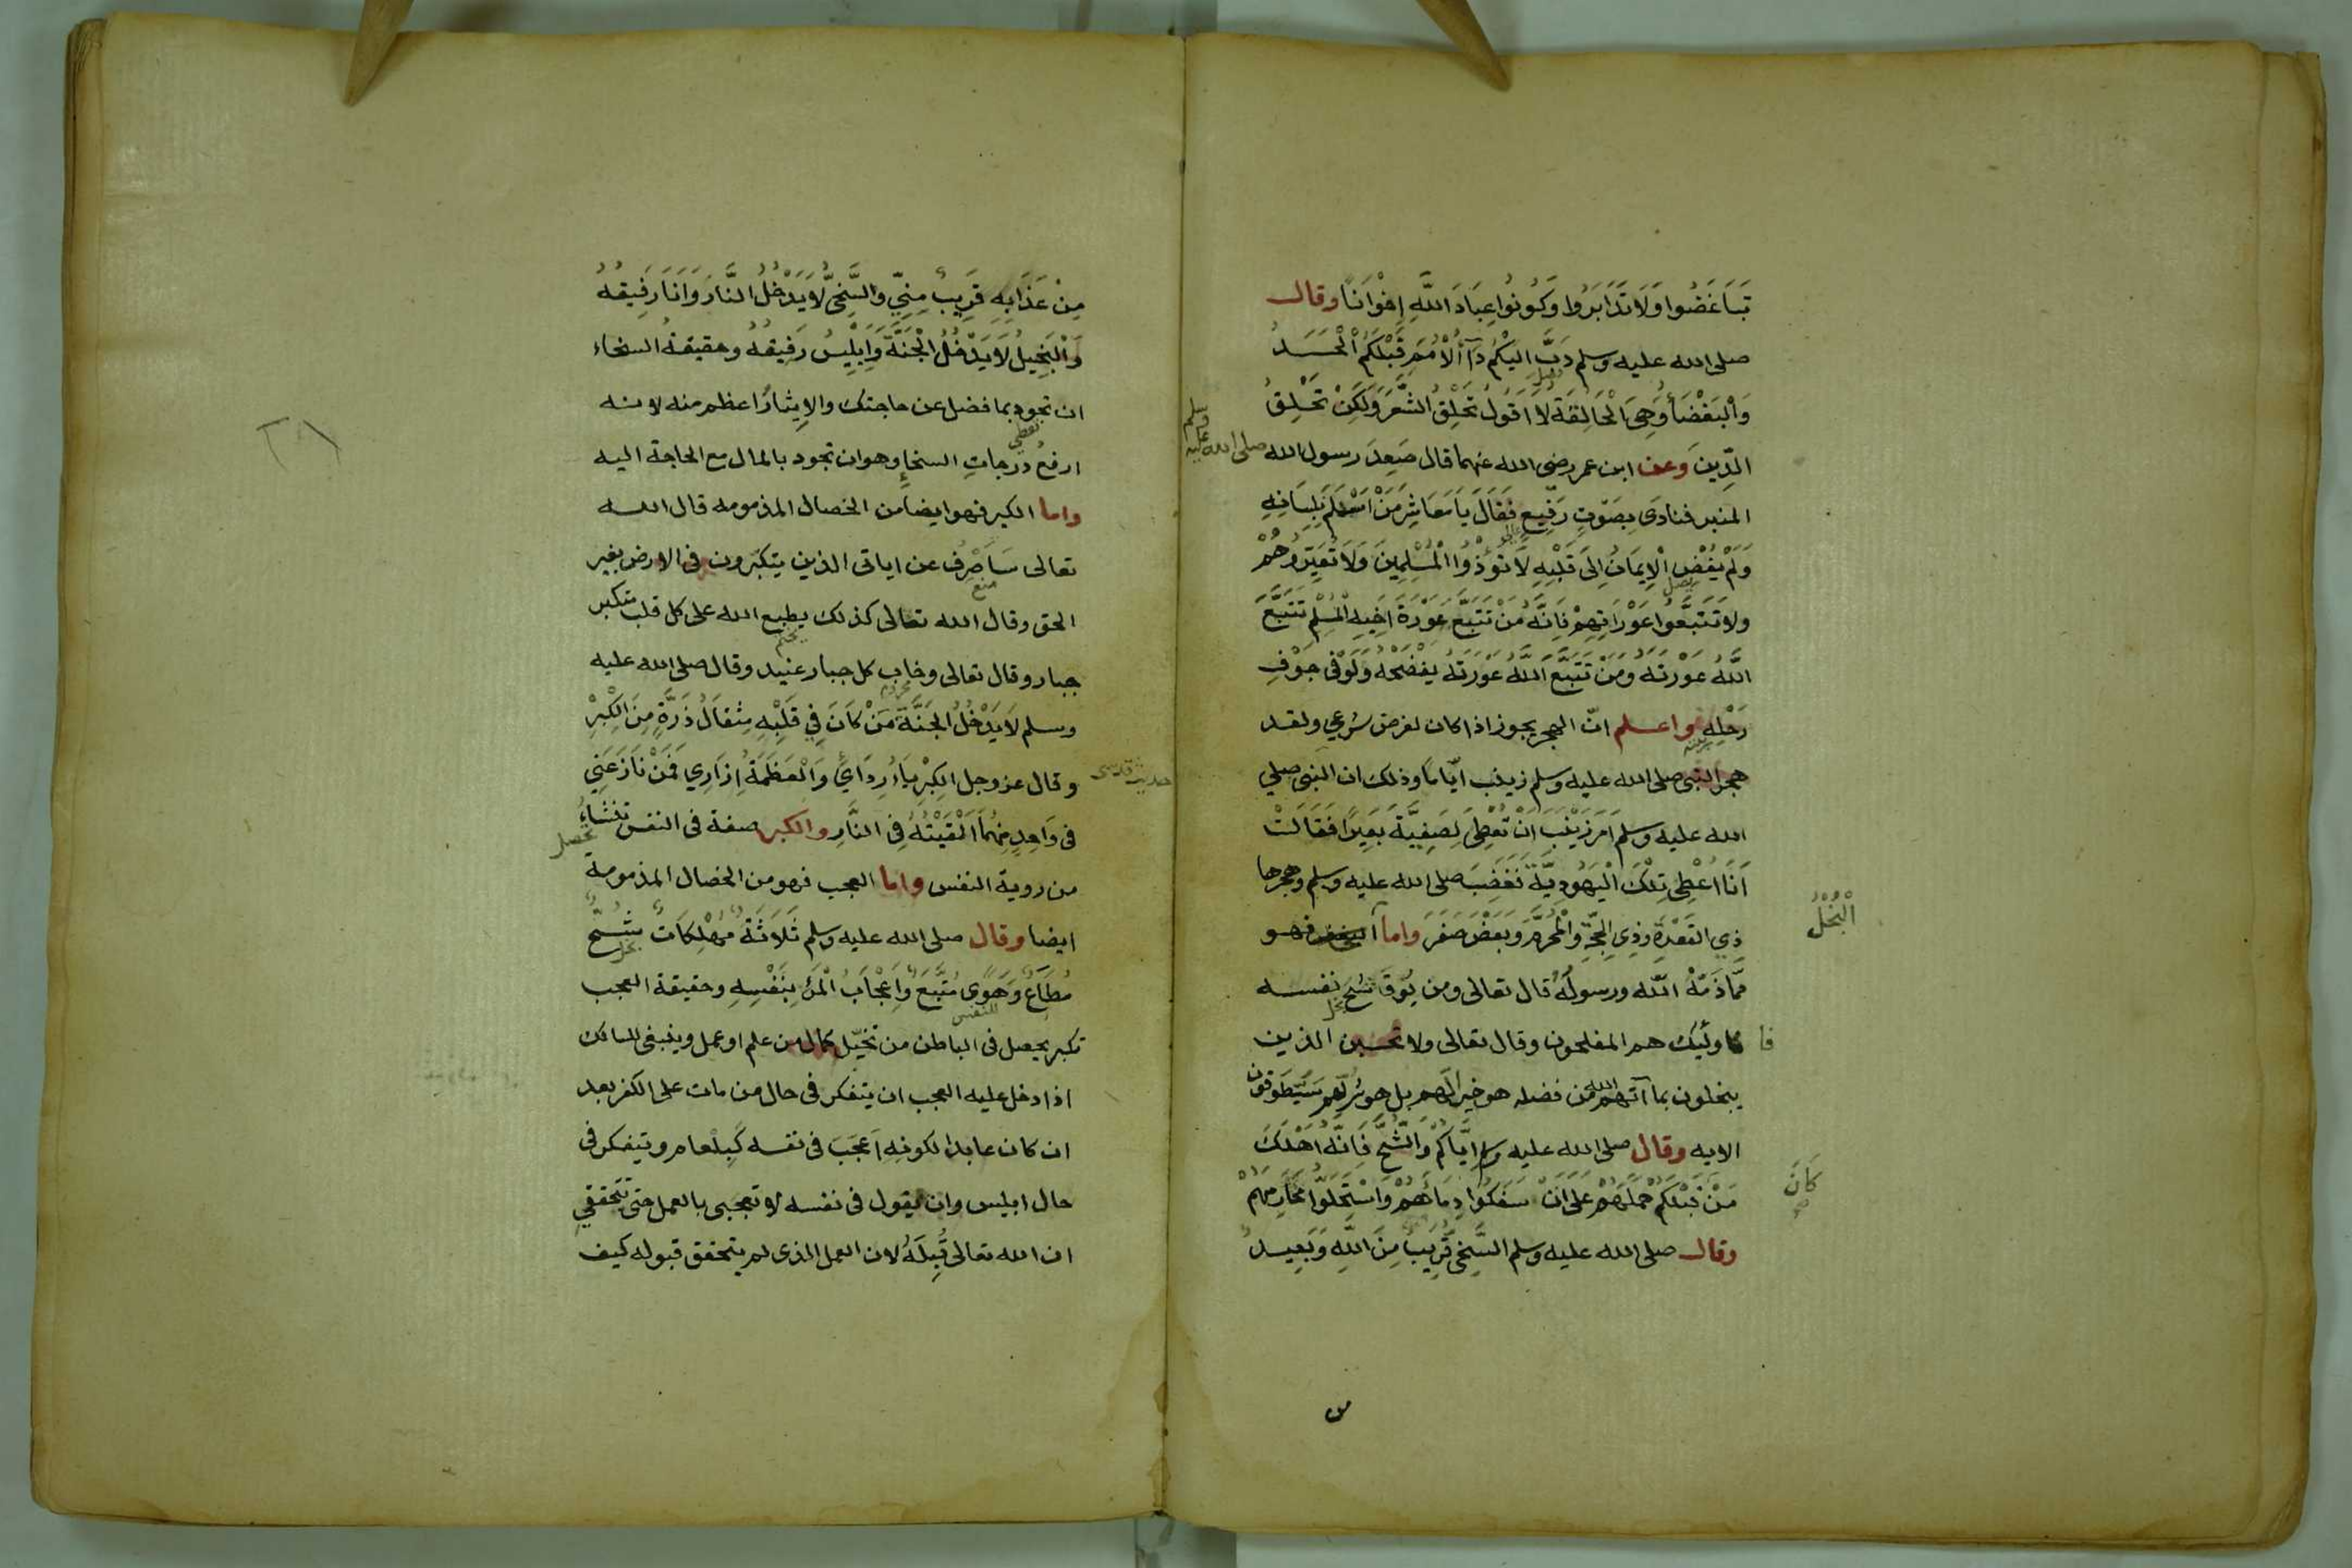 تَبَاغَضُوا وَلَا تَدَابَرُوا وَكُونُوا عِبَادَ اللَّهِ اِخْوَانًا وقال
صلى الله عليه وسلم دَبَّ اليْكُم دَآءُ الْأُمَمِ قَبْلَكُم الْحَسَدُ
وَالْبَغْضَاءُ وَهِيَ الْحَالِقَةُ لَا اَقُولُ تَحْلِقُ الشَّعَرَ وَلَكِنْ تَحْلِقُ
الدِّينَ وعن ابن عمر رضى الله عنهما قال صَعِدَ رسول الله صلى الله عليه وسلم
المنبر فنادَى بِصَوْتٍ رَفِيعٍ فَقَالَ يَا مَعَاشِرَ مَنْ اَسْلَمَ بِلِسَانِهِ
وَلَمْ يُفْضِ الْاِيمَانُ اِلَى قَلْبِهِ لَا تُؤْذُوا الْمُسْلِمِينَ وَلَا تُعَيِّرُوهُمْ
يصل
ولَا تَتَّبِعُوا عَوْرَاتِهِمْ فَاِنَّهُ مَنْ تَتَبَّعَ عَوْرَةَ اَخِيهِ الْمُسْلِمِ تَتَبَّعَ
اللَّهُ عَوْرَتَهُ وَمَنْ تَتَبَّعَ اللَّهُ عَوْرَتَهُ يَفْضَحْهُ وَلَوْ فِى جَوْفِ
رَحْلِهِ واعلم انّ الهجر يجوز اذا كان لغرض شرعي ولقد
هجر النبى صلى الله عليه وسلم زينب ايّامًا وذلك ان النبى صلي
الله عليه وسلم اَمَرَ زَيْنَبَ اَنْ تُعْطِيَ لِصَفِيَّةَ بَعِيرًا فَقَالَتْ
اَنَا اُعْطِى تِلْكَ الْيَهُودِيَّةَ فَغَضِبَ صلى الله عليه وسلم وهجرها
ذِي القَعْدَةِ وَذِي الْحِجَّةِ وَالْمُحَرَّمَ وَبَعْضَ صَفَرَ واما فهو
الْبُخْلُ
مِمَّا ذَمَّهُ اللّه ورسولُهُ قال تعالى ومن يُوقَ شُحَّ نفسه
بخل
فاولئِك هم المفلحون وقال تعالى ولا تحسبن الذين
يبخلون بما آتهم الله من فضله هو خيرا لَهم بل هو شرٌ لهم سَيُطَوَّقون
الايه وقال صلى الله عليه وسلم اِيَّاكُمْ وَالشُّحَّ فَاِنَّهُ اَهْلَكَ
مَنْ كَانَ قَبْلَكُمْ حَمَلَهُمْ عَلَى اَنْ سَفَكُوا دِمَاءَهُمْ وَاسْتَحَلُّوا مَحَارِمَهُمْ
وقال صلى الله عليه وسلم السَّخِىُّ قَرِيبٌ مِنَ اللَّهِ وَبَعِيدٌ
من
مِنْ عَذَابِهِ قَرِيبٌ مِنِّي وَالسَّخِيُّ لَا يَدْخُلُ النَّارَ وَاَنَا رَفِيقُهُ
وَالْبَخِيلُ لَا يَدْخُلُ الْجَنَّةَ وَاِبْلِيسُ رَفِيقُهُ وحقيقةُ السخاء
ان تجود بما فضل عن حاجتك والاِيثارُ اعظم منه لانه
تعطي
ارفعُ درجاتِ السخاءِ وهو ان تجود بالمال مع الحاجة اليه
واما الكبر فهو ايضا من الخصال المذمومه قال الله
تعالى سَاَصْرِفُ عن اياتى الذين يتكبّرون فى الارض بغير
منع
الحق وقال الله تعالى كذلك يطبع الله على كل قلب متكبر
يختم
جبار وقال تعالى وخاب كل جبار عنيد وقال صلى الله عليه
محروم
وسلم لَا يَدْخُلُ الْجَنَّةَ مَنْ كَانَ فِي قَلْبِهِ مِثْقَالُ ذَرَّةٍ مِنَ الْكِبْرِ
وقال عز وجل الْكِبْرِيَاءُ رِدَائِي وَالْعَظَمَةُ اِزَارِي فَمَنْ نَازَعَنِي
حديث قدسى
فى وَاحِدٍ مِنْهُمَا اَلْقَيْتُهُ فِى النَّارِ والكبر صفة فى النفس تنشاءُ
تحصل
من روية النفس واما العجب فهو من الخصال المذمومة
ايضا وقال صلى الله عليه وسلم ثَلَاثَةٌ مُهْلِكَاتٌ شُحٌّ
بخل
مُطَاعٌ وَهَوًى مُتَّبَعٌ وَاِعْجَابُ الْمَرْءِ بِنَفْسِهِ وحقيقة العجب
للنفس
تكبر يحصل فى الباطن من تخيّل كمال من علم او عمل وينبغى للسالك
اذا دخل عليه العجب ان يتفكر فى حال من مات على الكفر بعد
ان كان عابدا لكونِهِ اَعْجَبَ فى نفسه كَبِلْعام ويتفكر فى
حال ابليس وان يقول فى نفسه لا تعجبى بالعمل حتى تَتَحققى
ان الله تعالى قَبِلَهُ لان العمل الذى لم يتحقق قبوله كيف